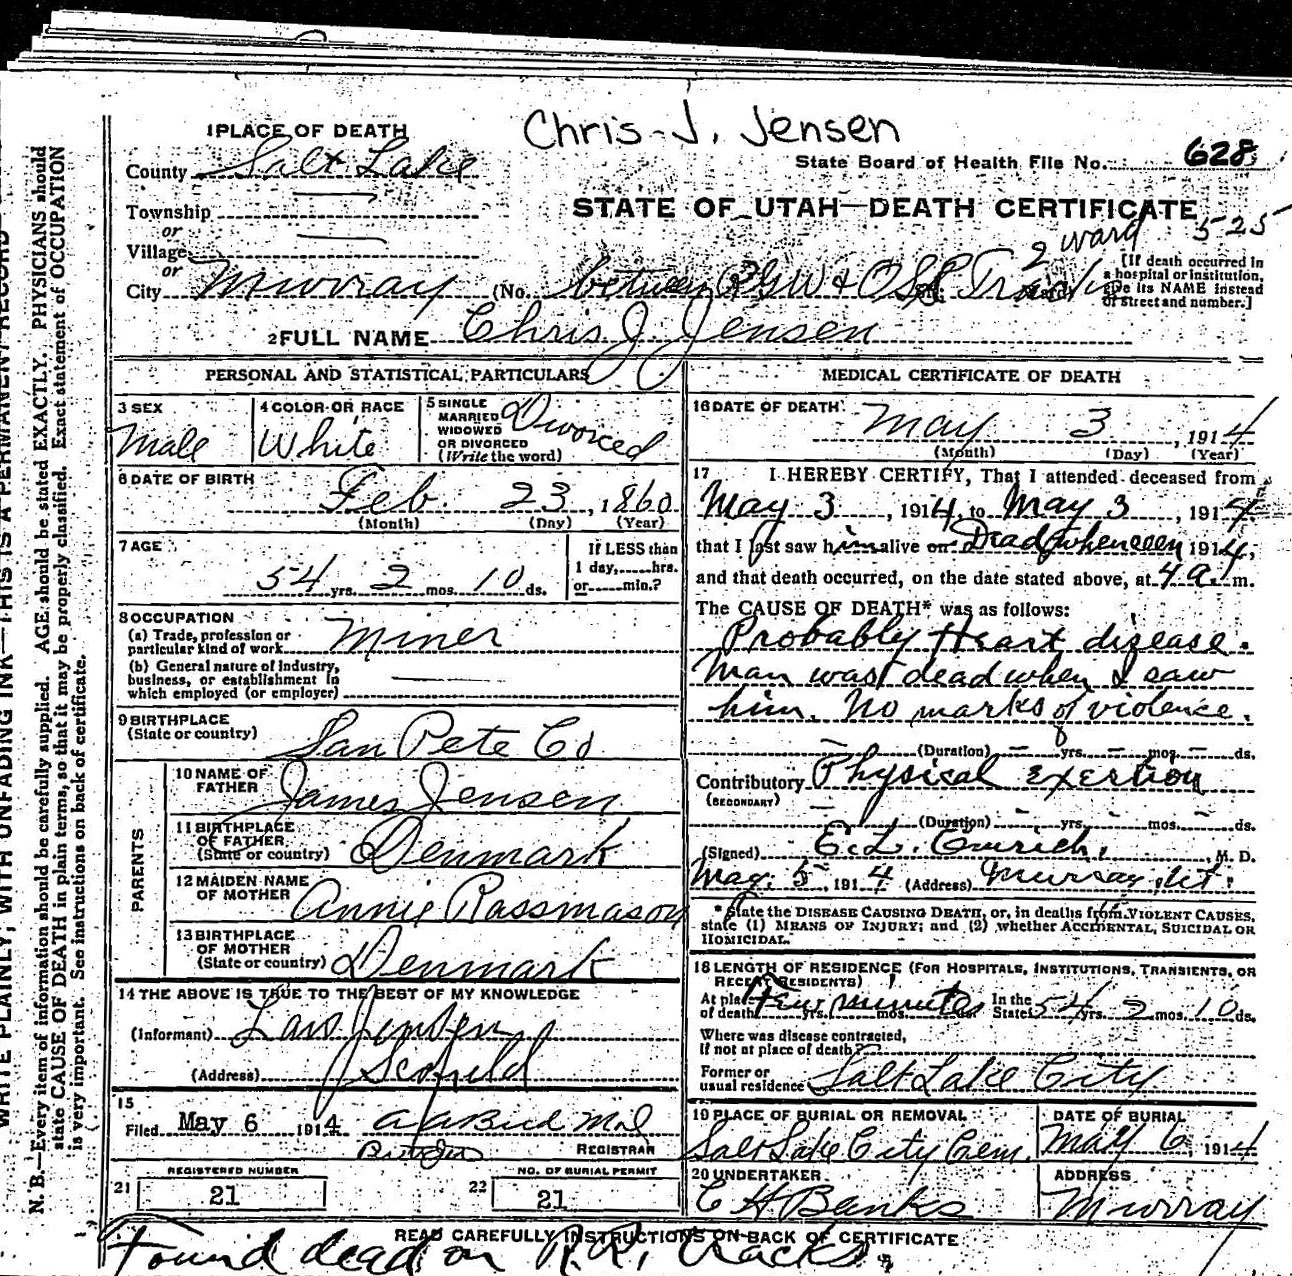 Chris J. Jensen
1 PLACE OF DEATH
County Salt Lake
State Board of Health File No. 628
STATE OF UTAH—DEATH CERTIFICATE
525
Township
or
Village
or
City Murray (No. between RGW & OSL Tracks 2 ward
[If death occurred in
a hospital or institution,
give its NAME instead
of street and number.]
2 FULL NAME Chris J. Jensen
PERSONAL AND STATISTICAL PARTICULARS
3 SEX
Male
4 COLOR OR RACE
White
5 SINGLE
MARRIED
WIDOWED
OR DIVORCED
(Write the word)
Divorced
6 DATE OF BIRTH
Feb. 23, 1860
(Month) (Day) (Year)
7 AGE
54 yrs. 2 mos. 10 ds.
If LESS than
1 day, hrs.
or min.?
8 OCCUPATION
(a) Trade, profession or
particular kind of work Miner
(b) General nature of industry,
business, or establishment in
which employed (or employer)
9 BIRTHPLACE
(State or country) San Pete Co
PARENTS
10 NAME OF
FATHER James Jensen
11 BIRTHPLACE
OF FATHER
(State or country) Denmark
12 MAIDEN NAME
OF MOTHER Annie Rassmason
13 BIRTHPLACE
OF MOTHER
(State or country) Denmark
14 THE ABOVE IS TRUE TO THE BEST OF MY KNOWLEDGE
(Informant) Jensen
(Address) Scofield
15
Filed May 6 1914
REGISTRAR
REGISTERED NUMBER
21 21
NO. OF BURIAL PERMIT
22 21
MEDICAL CERTIFICATE OF DEATH
16 DATE OF DEATH
May 3, 1914
(Month) (Day) (Year)
17 I HEREBY CERTIFY, That I attended deceased from
May 3, 1914, to May 3, 1914
that I last saw him alive on Dead when seen 1914,
and that death occurred, on the date stated above, at 4 a. m.
The CAUSE OF DEATH* was as follows:
Probably Heart disease.
Man was dead when I saw
him. No marks of violence.
(Duration) yrs. mos. ds.
Contributory Physical exertion
(SECONDARY)
(Duration) yrs. mos. ds.
(Signed) E. L. M. D.
May 5, 1914 (Address) Murray, Ut.
* State the DISEASE CAUSING DEATH, or, in deaths from VIOLENT CAUSES,
state (1) MEANS OF INJURY; and (2) whether ACCIDENTAL, SUICIDAL OR
HOMICIDAL.
18 LENGTH OF RESIDENCE (FOR HOSPITALS, INSTITUTIONS, TRANSIENTS, OR
RECENT RESIDENTS)
At place
of death few minutes yrs. mos. ds. In the
State 54 yrs. 2 mos. 10 ds.
Where was disease contracted,
if not at place of death?
Former or
usual residence Salt Lake City
19 PLACE OF BURIAL OR REMOVAL
Salt Lake City Cem.
DATE OF BURIAL
May 6 1914
20 UNDERTAKER
C H Banks
ADDRESS
Murray
READ CAREFULLY INSTRUCTIONS ON BACK OF CERTIFICATE
Found dead on R.R. tracks.
WRITE PLAINLY, WITH UNFADING INK—THIS IS A PERMANENT RECORD
N. B.—Every item of information should be carefully supplied. AGE should be stated EXACTLY. PHYSICIANS should
state CAUSE OF DEATH in plain terms, so that it may be properly classified. Exact statement of OCCUPATION
is very important. See instructions on back of certificate.